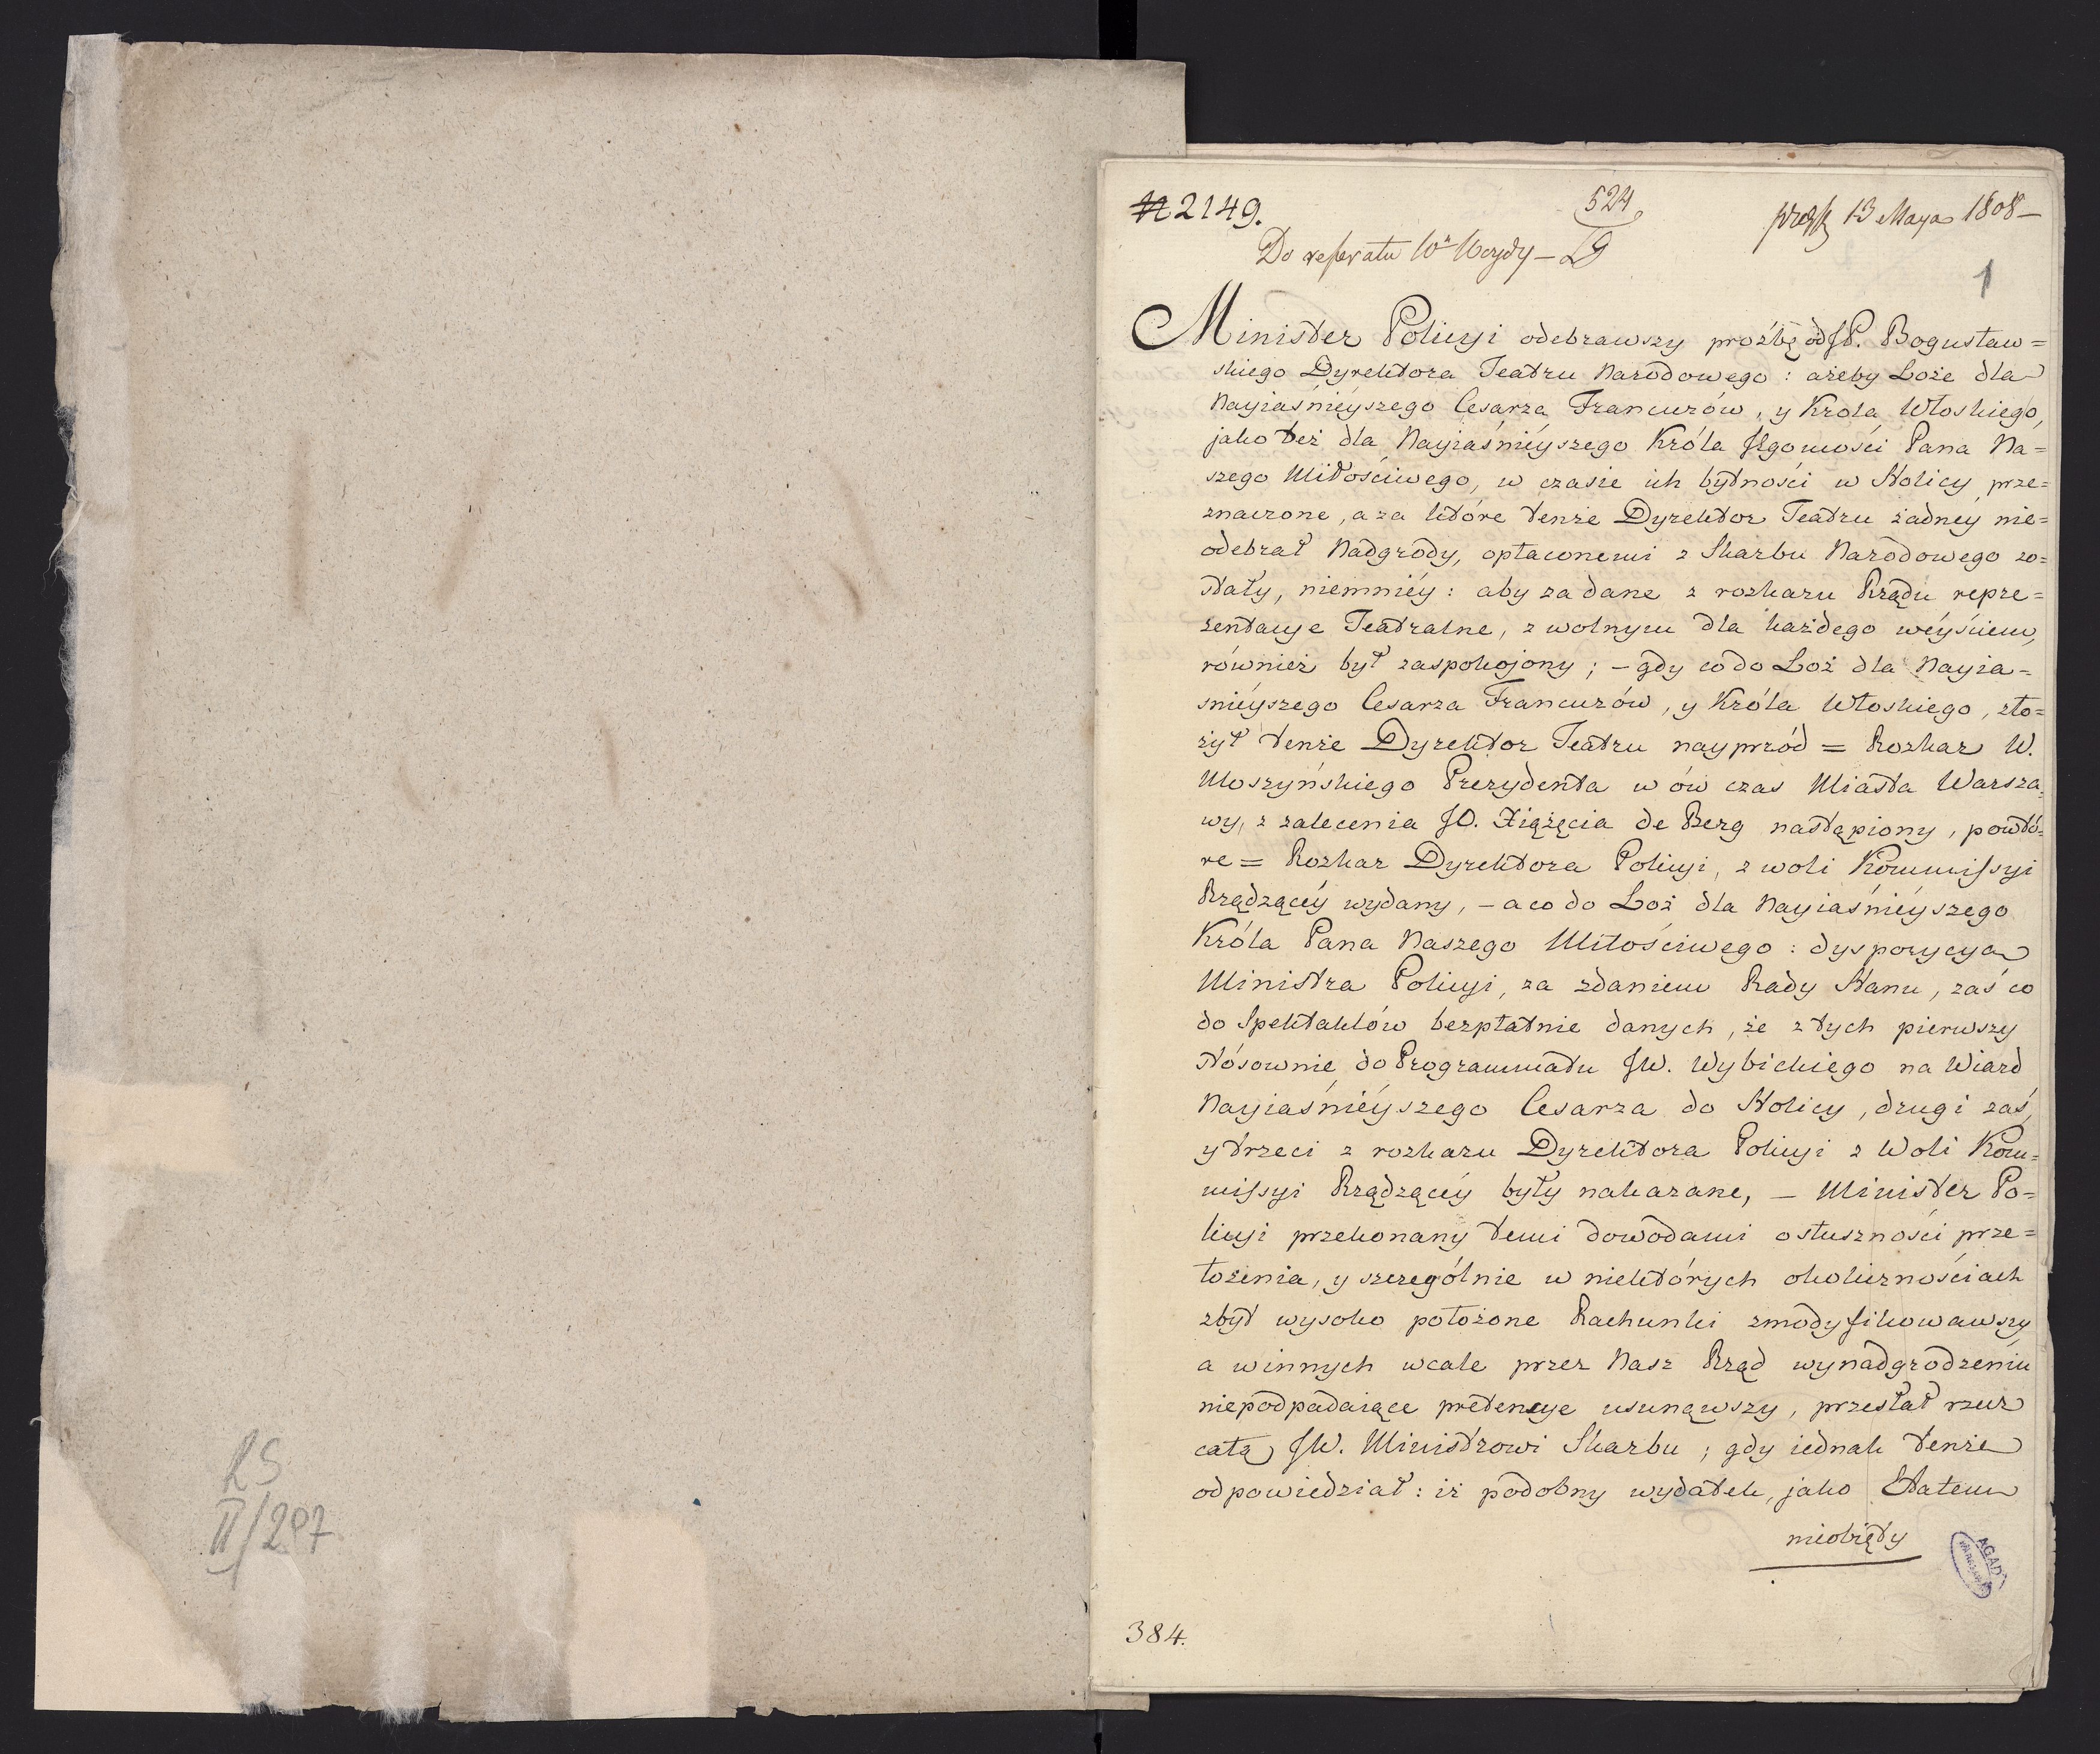 N 2149.
524
prez 13 Maya 1808 —
Do referatu Wo Woydy —
1
Minister Policyi odebrawszy prożbę od JP. Bogusław=
skiego Dyrektora Teatru Narodowego : ażeby Loże dla
Nayiaśnieyszego Cesarza Francuzów, y Krola Włoskiego,
jako też dla Nayiaśnieyszego Króla JEgomości Pana Na=
szego Miłościwego, w czasie ich bytności w Stolicy prze=
znaczone, a za które tenże Dyrektor Teatru żadney nie=
odebrał Nadgrody, opłaconemi z Skarbu Narodowego zo=
stały, niemniéy : aby za dane z rozkazu Rządu repre=
zentacye Teatralne, z wolnym dla każdego weyściem,
również był zaspokojony ; — gdy co do Loż dla Nayia=
śnieyszego Cesarza Francuzów, y Króla Włoskiego, zło=
żył tenże Dyrektor Teatru nayprzód = Rozkaz W.
Moszyńskiego Prezydenta w ów czas Miasta Warsza=
wy, z zalecenia JO. Xiążęcia de Berg nastąpiony, powtó=
re = Rozkaz Dyrektora Policyi, z woli Kommissyi
Rządzącéy wydany, — a co do Loż dla Nayiaśnieyszego
Króla Pana Naszego Miłościwego : dyspozycya
Ministra Policyi, za zdaniem Rady Stanu, zaś co
do Spektaklów bezpłatnie danych, że z tych pierwszy
stósownie do Programmatu JW. Wybickiego na Wiazd
Nayiaśnieyszego Cesarza do Stolicy, drugi zaś,
y trzeci z rozkazu Dyrektora Policyi z Woli Kom=
missyi Rządzącéy były nakazane, — Minister Po=
licyi przekonany temi dowodami o słuszności prze=
łożenia, y szczególnie w niektórych okolicznościach
zbyt wysoko położone Rachunki zmodyfikowawszy
a w innych wcale przez Nasz Rząd wynadgrodzeniu
niepodpadaiące pretensye usunąwszy, przesłał rzecz
całą JW. Ministrowi Skarbu ; gdy iednak tenże
odpowiedział : iż podobny wydatek, jako Etatem
nieobięty
AGAD
WARSZAWA
384.
RS
II/287